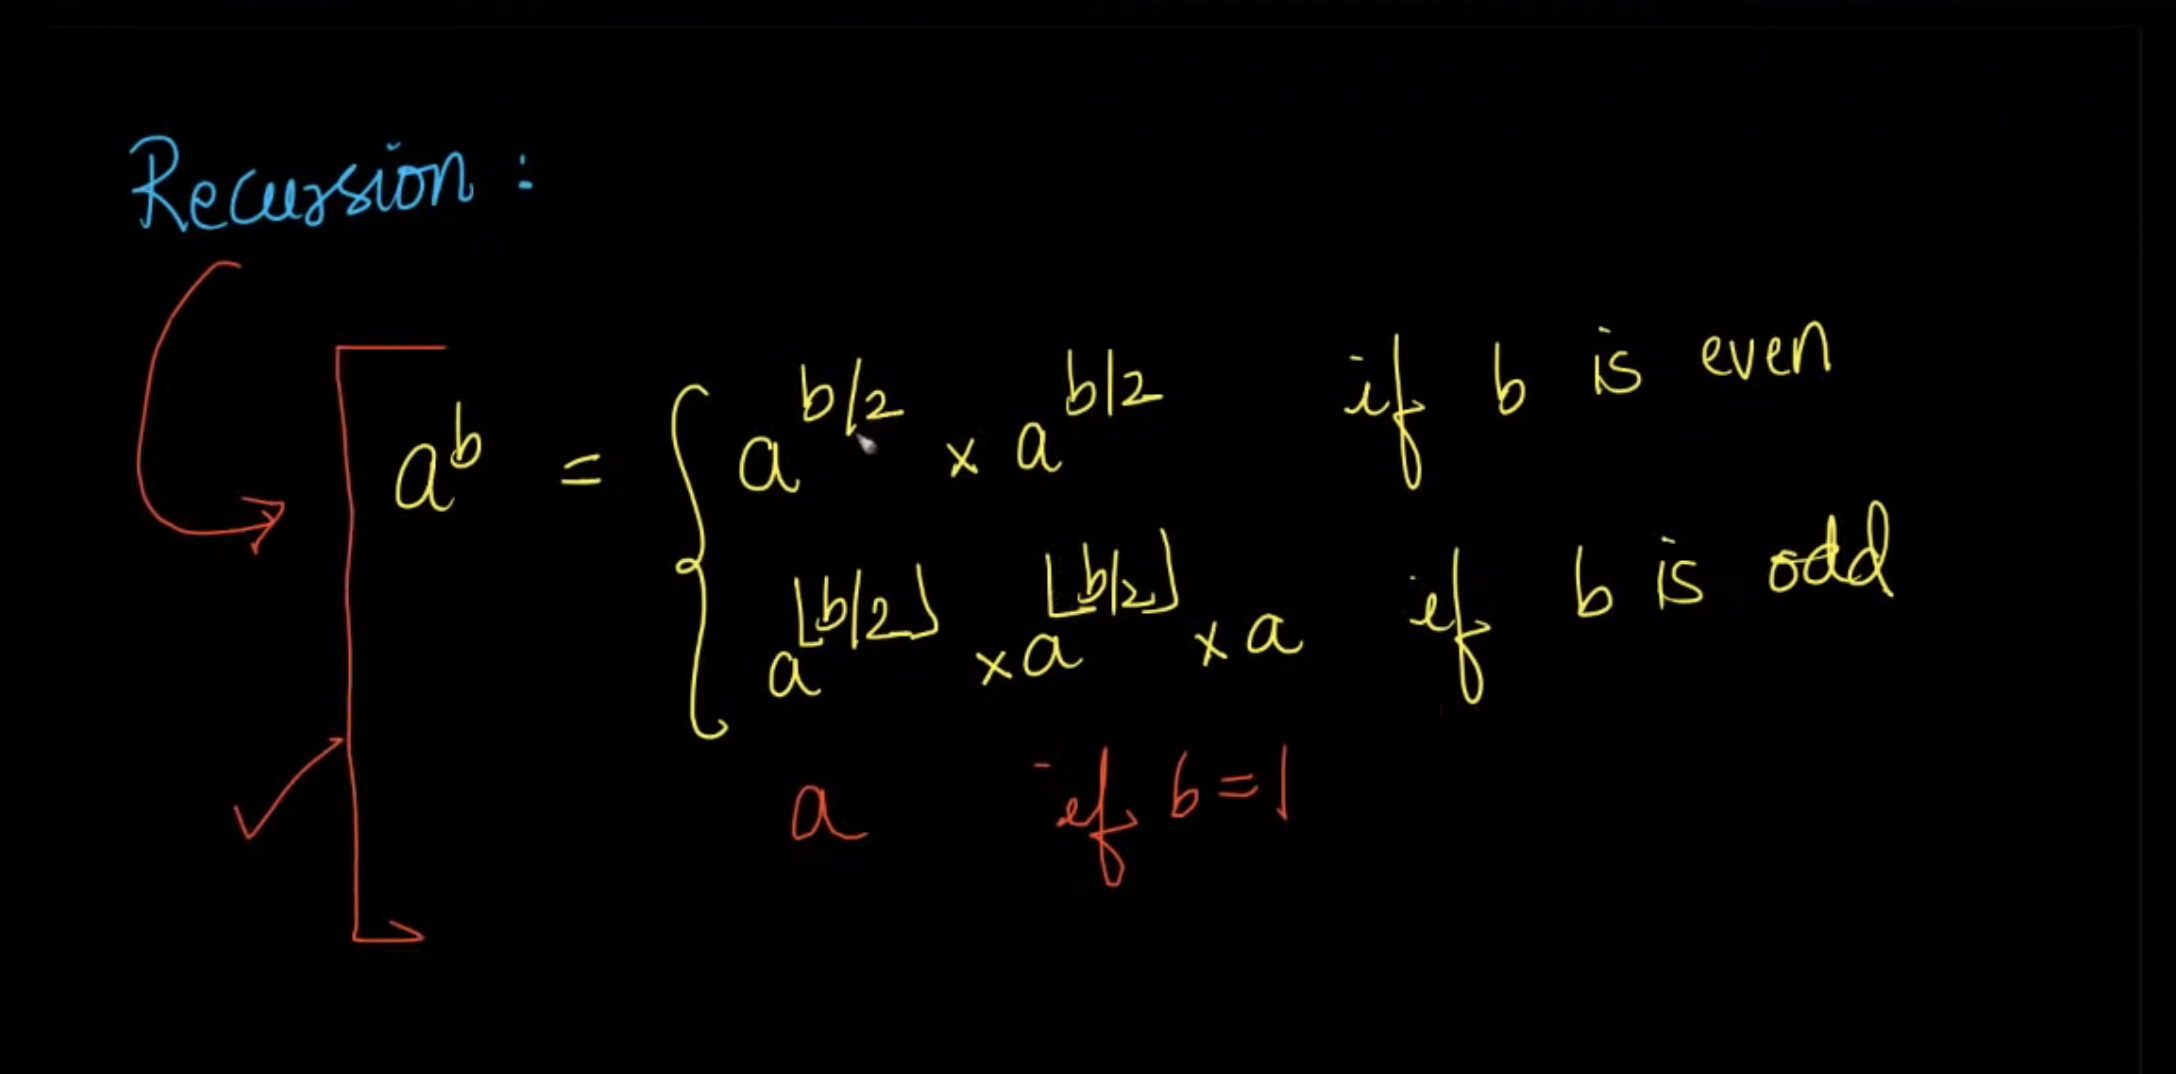 Recursion :
a^b = { a^{b/2} × a^{b/2} if b is even
a^{⌊b/2⌋} × a^{⌊b/2⌋} × a if b is odd
a if b=1